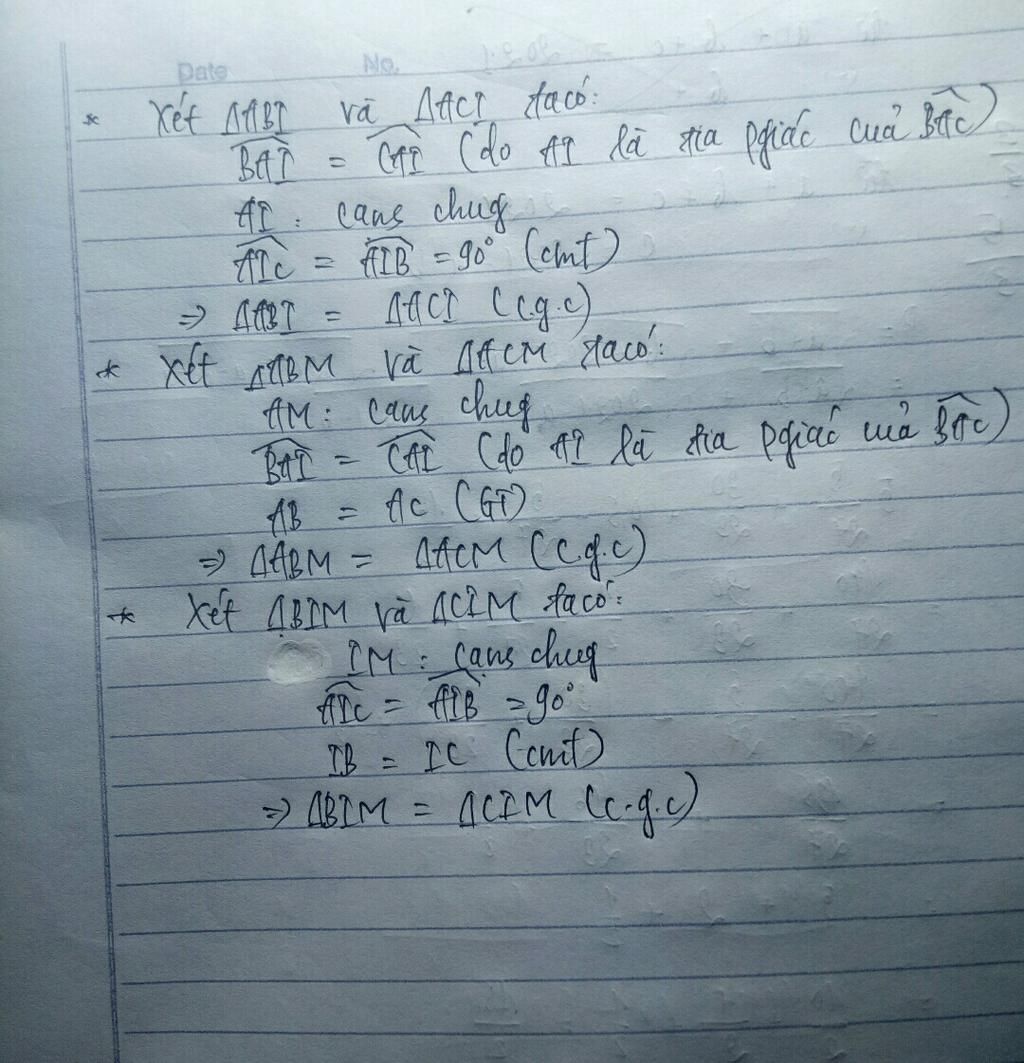 Date No.
* Xét ΔABI và ΔACI ta có:
BAI = CAI (do AI là tia pgiác của BAC)
AI : cạnh chug
AIC = AIB = 90° (cmt)
⇒ ΔABI = ΔACI (c.g.c)
* Xét ΔABM và ΔACM ta có:
AM : cạnh chug
BAI = CAI (do AI là tia pgiác của BAC)
AB = AC (GT)
⇒ ΔABM = ΔACM (c.g.c)
* Xét ΔBIM và ΔCIM ta có:
IM : cạnh chug
AIC = AIB = 90°
IB = IC (cmt)
⇒ ΔBIM = ΔCIM (c.g.c)